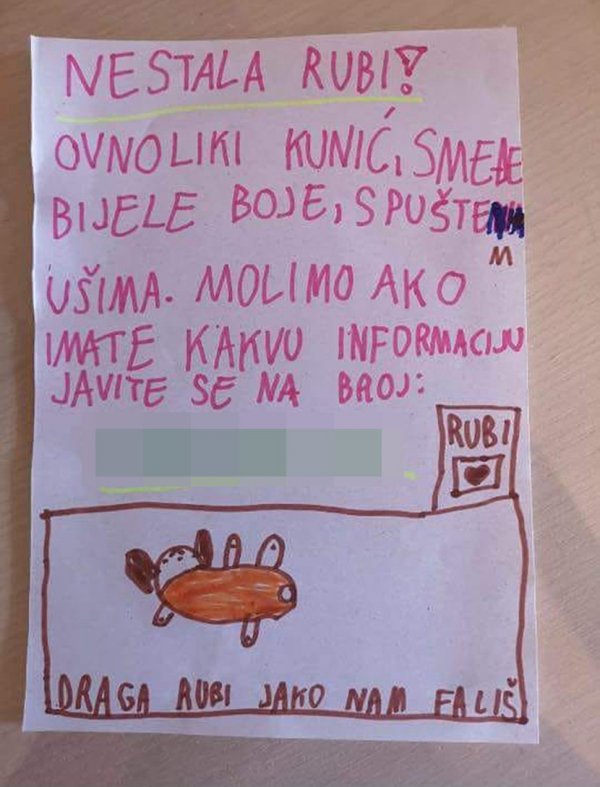 NESTALA RUBI!
OVNOLIKI KUNIĆ, SMEĐE
BIJELE BOJE, SPUŠTENIM
UŠIMA. MOLIMO AKO
IMATE KAKVU INFORMACIJU
JAVITE SE NA BROJ:
RUBI
DRAGA RUBI JAKO NAM FALIŠ